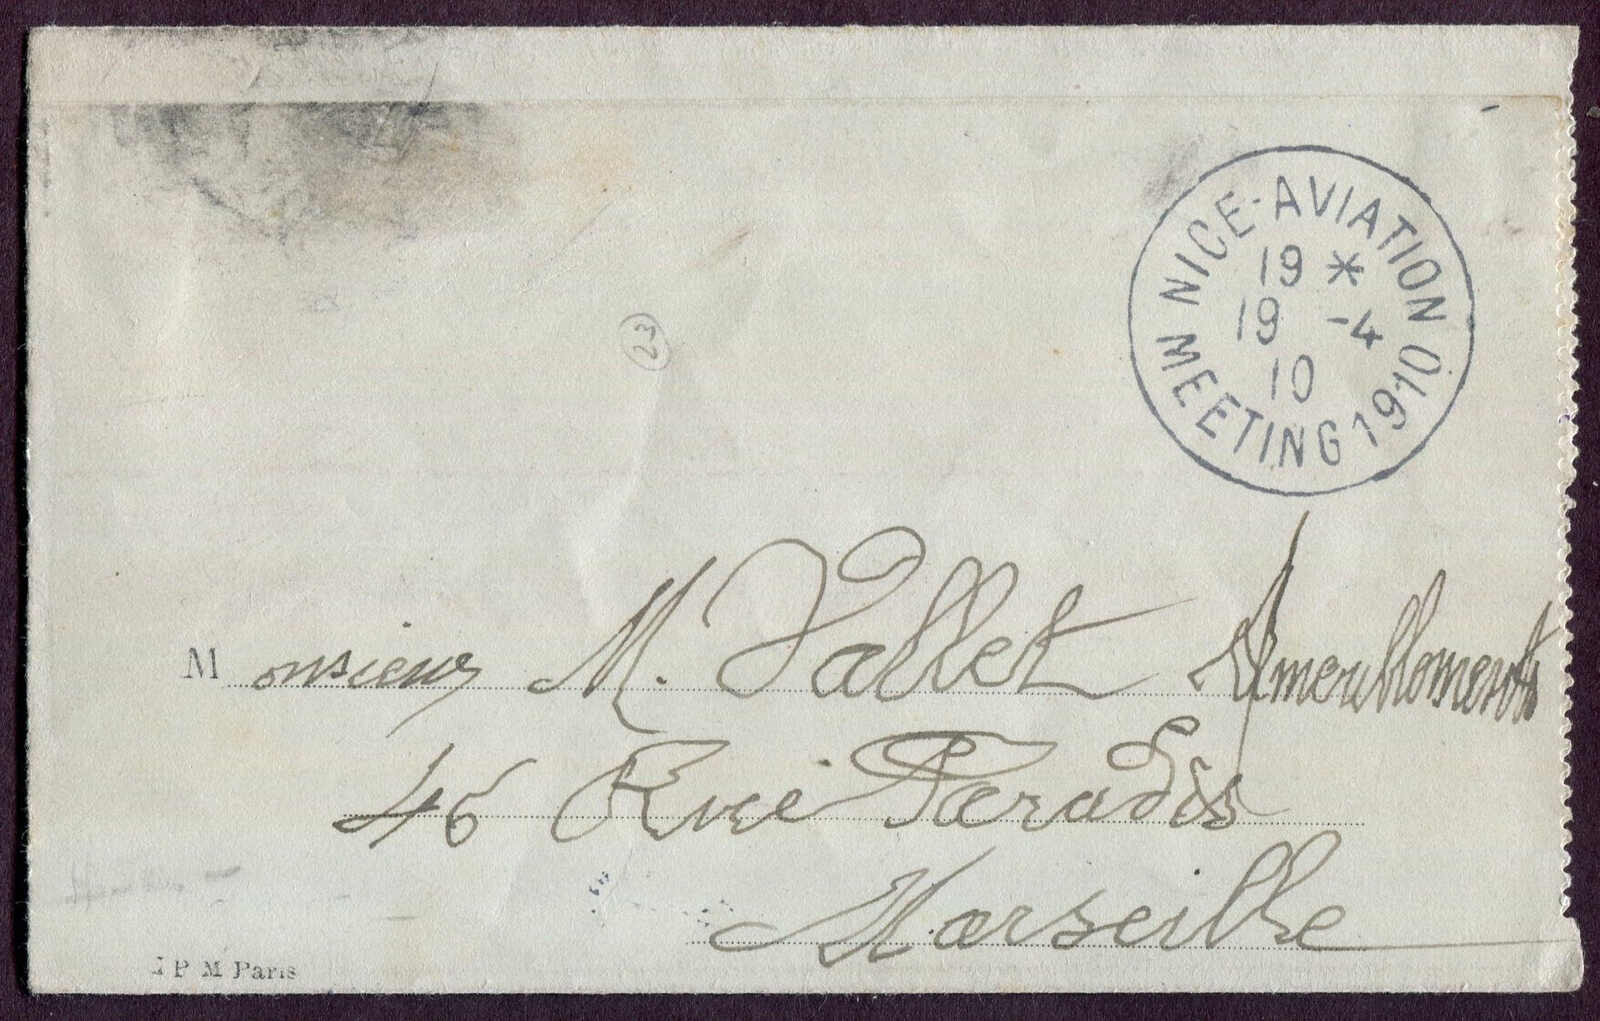 NICE-AVIATION
19 *
19 -4
10
MEETING 1910
23
Monsieur M. Vallet Ameublements
46 Rue Paradis
Marseille
J P M Paris